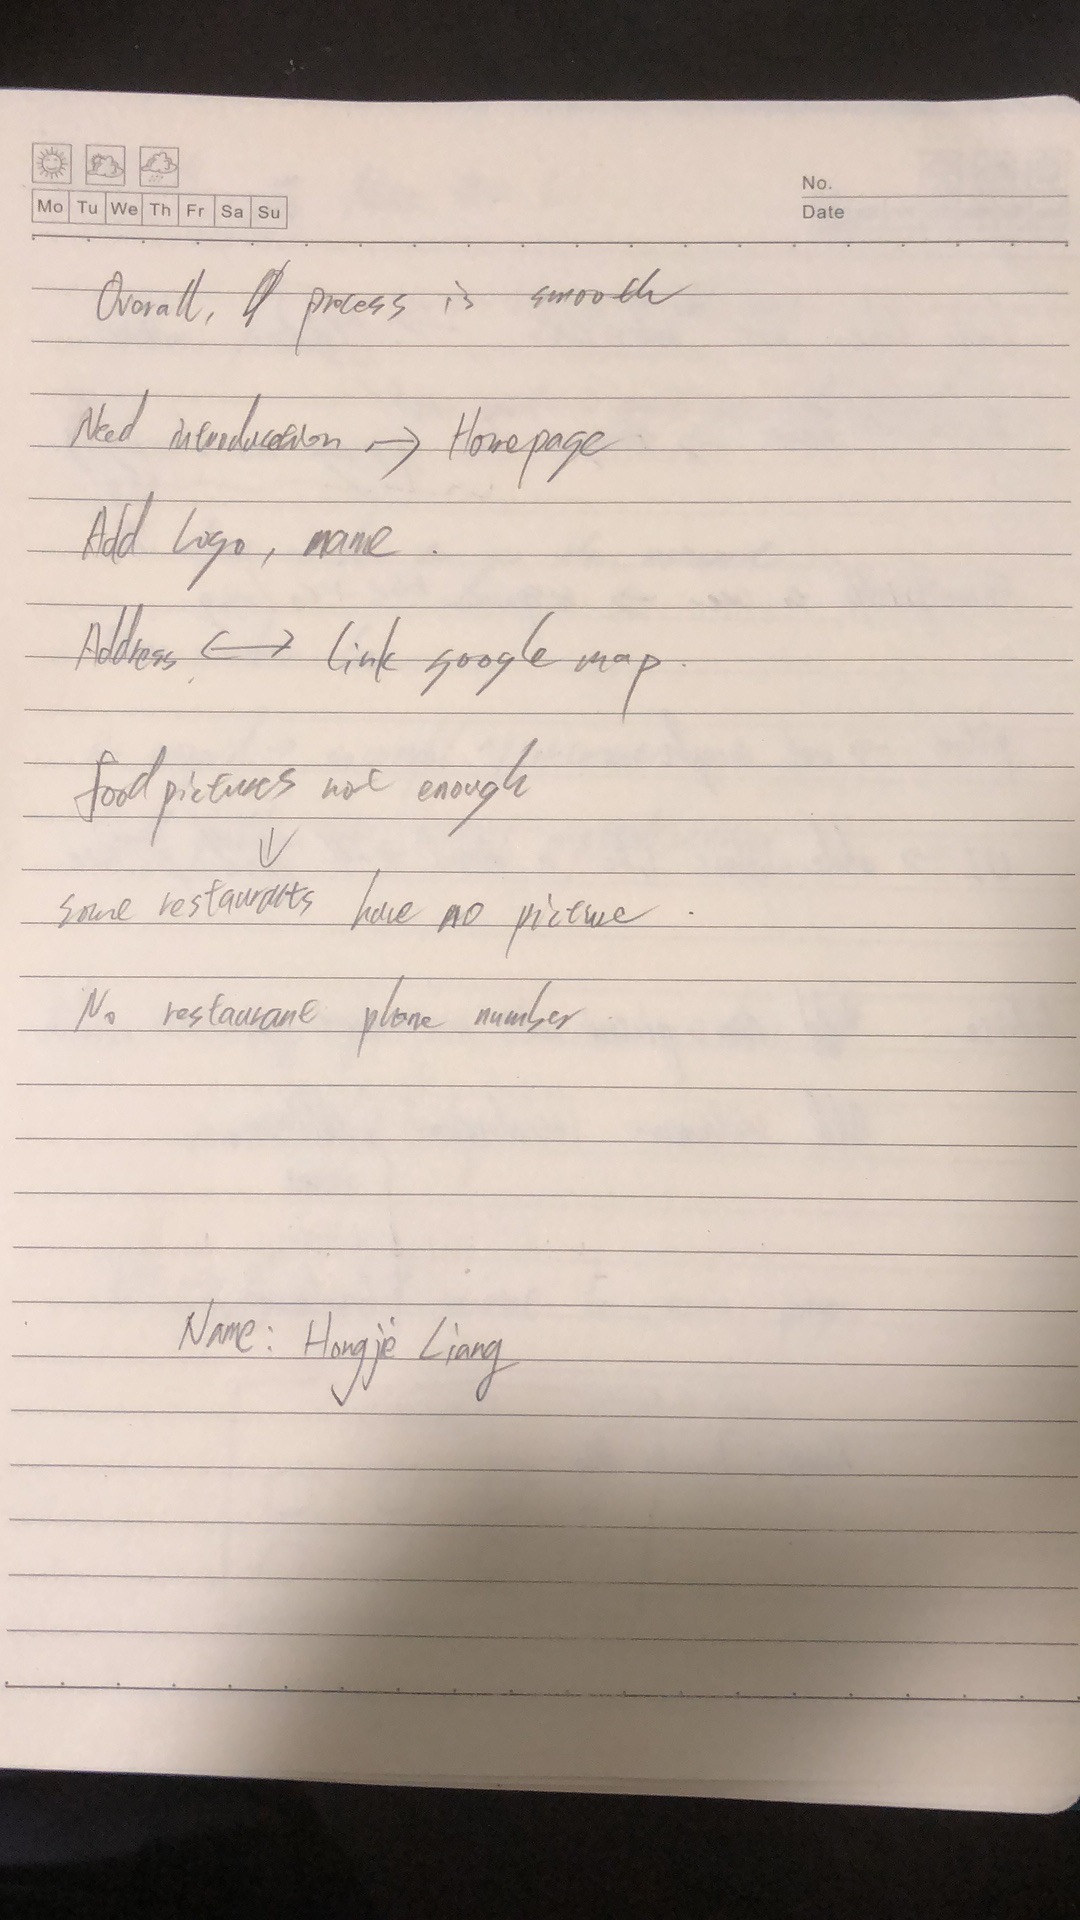 Mo Tu We Th Fr Sa Su
No.
Date
Overall, process is smooth
Need introduction → Homepage
Add Logo, name.
Address ↔ link google map.
food pictures not enough
↓
some restaurants have no picture.
No restaurant phone number
Name: Hongjie Liang